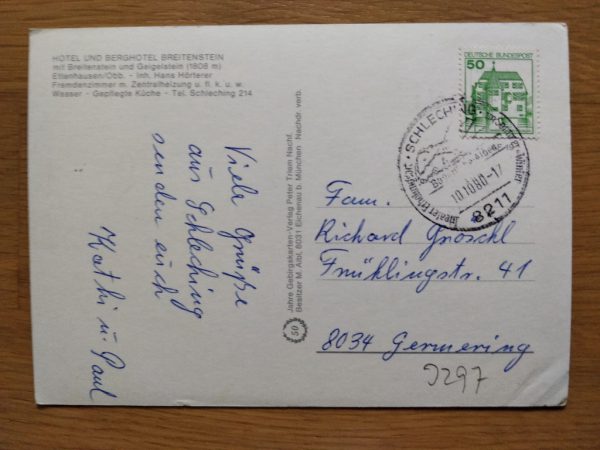 HOTEL UND BERGHOTEL BREITENSTEIN
mit Breitenstein und Geigelstein (1808 m)
Ettenhausen/Obb. - Inh. Hans Hörterer
Fremdenzimmer m. Zentralheizung u. fl. k. u. w.
Wasser - Gepflegte Küche - Tel. Schleching 214
Viele Grüße
aus Schleching
senden euch
Kathi u. Paul
50 Jahre Gebirgskarten-Verlag Peter Triem Nachf.
Besitzer M. Aibl, 8031 Eichenau b. München Nachdr. verb.
DEUTSCHE BUNDESPOST
50
SCHLECHING
Sommer + Winter
10.10.80-17
8211
Fam.
Richard Gröschl
Frühlingstr. 41
8034 Germering
J297